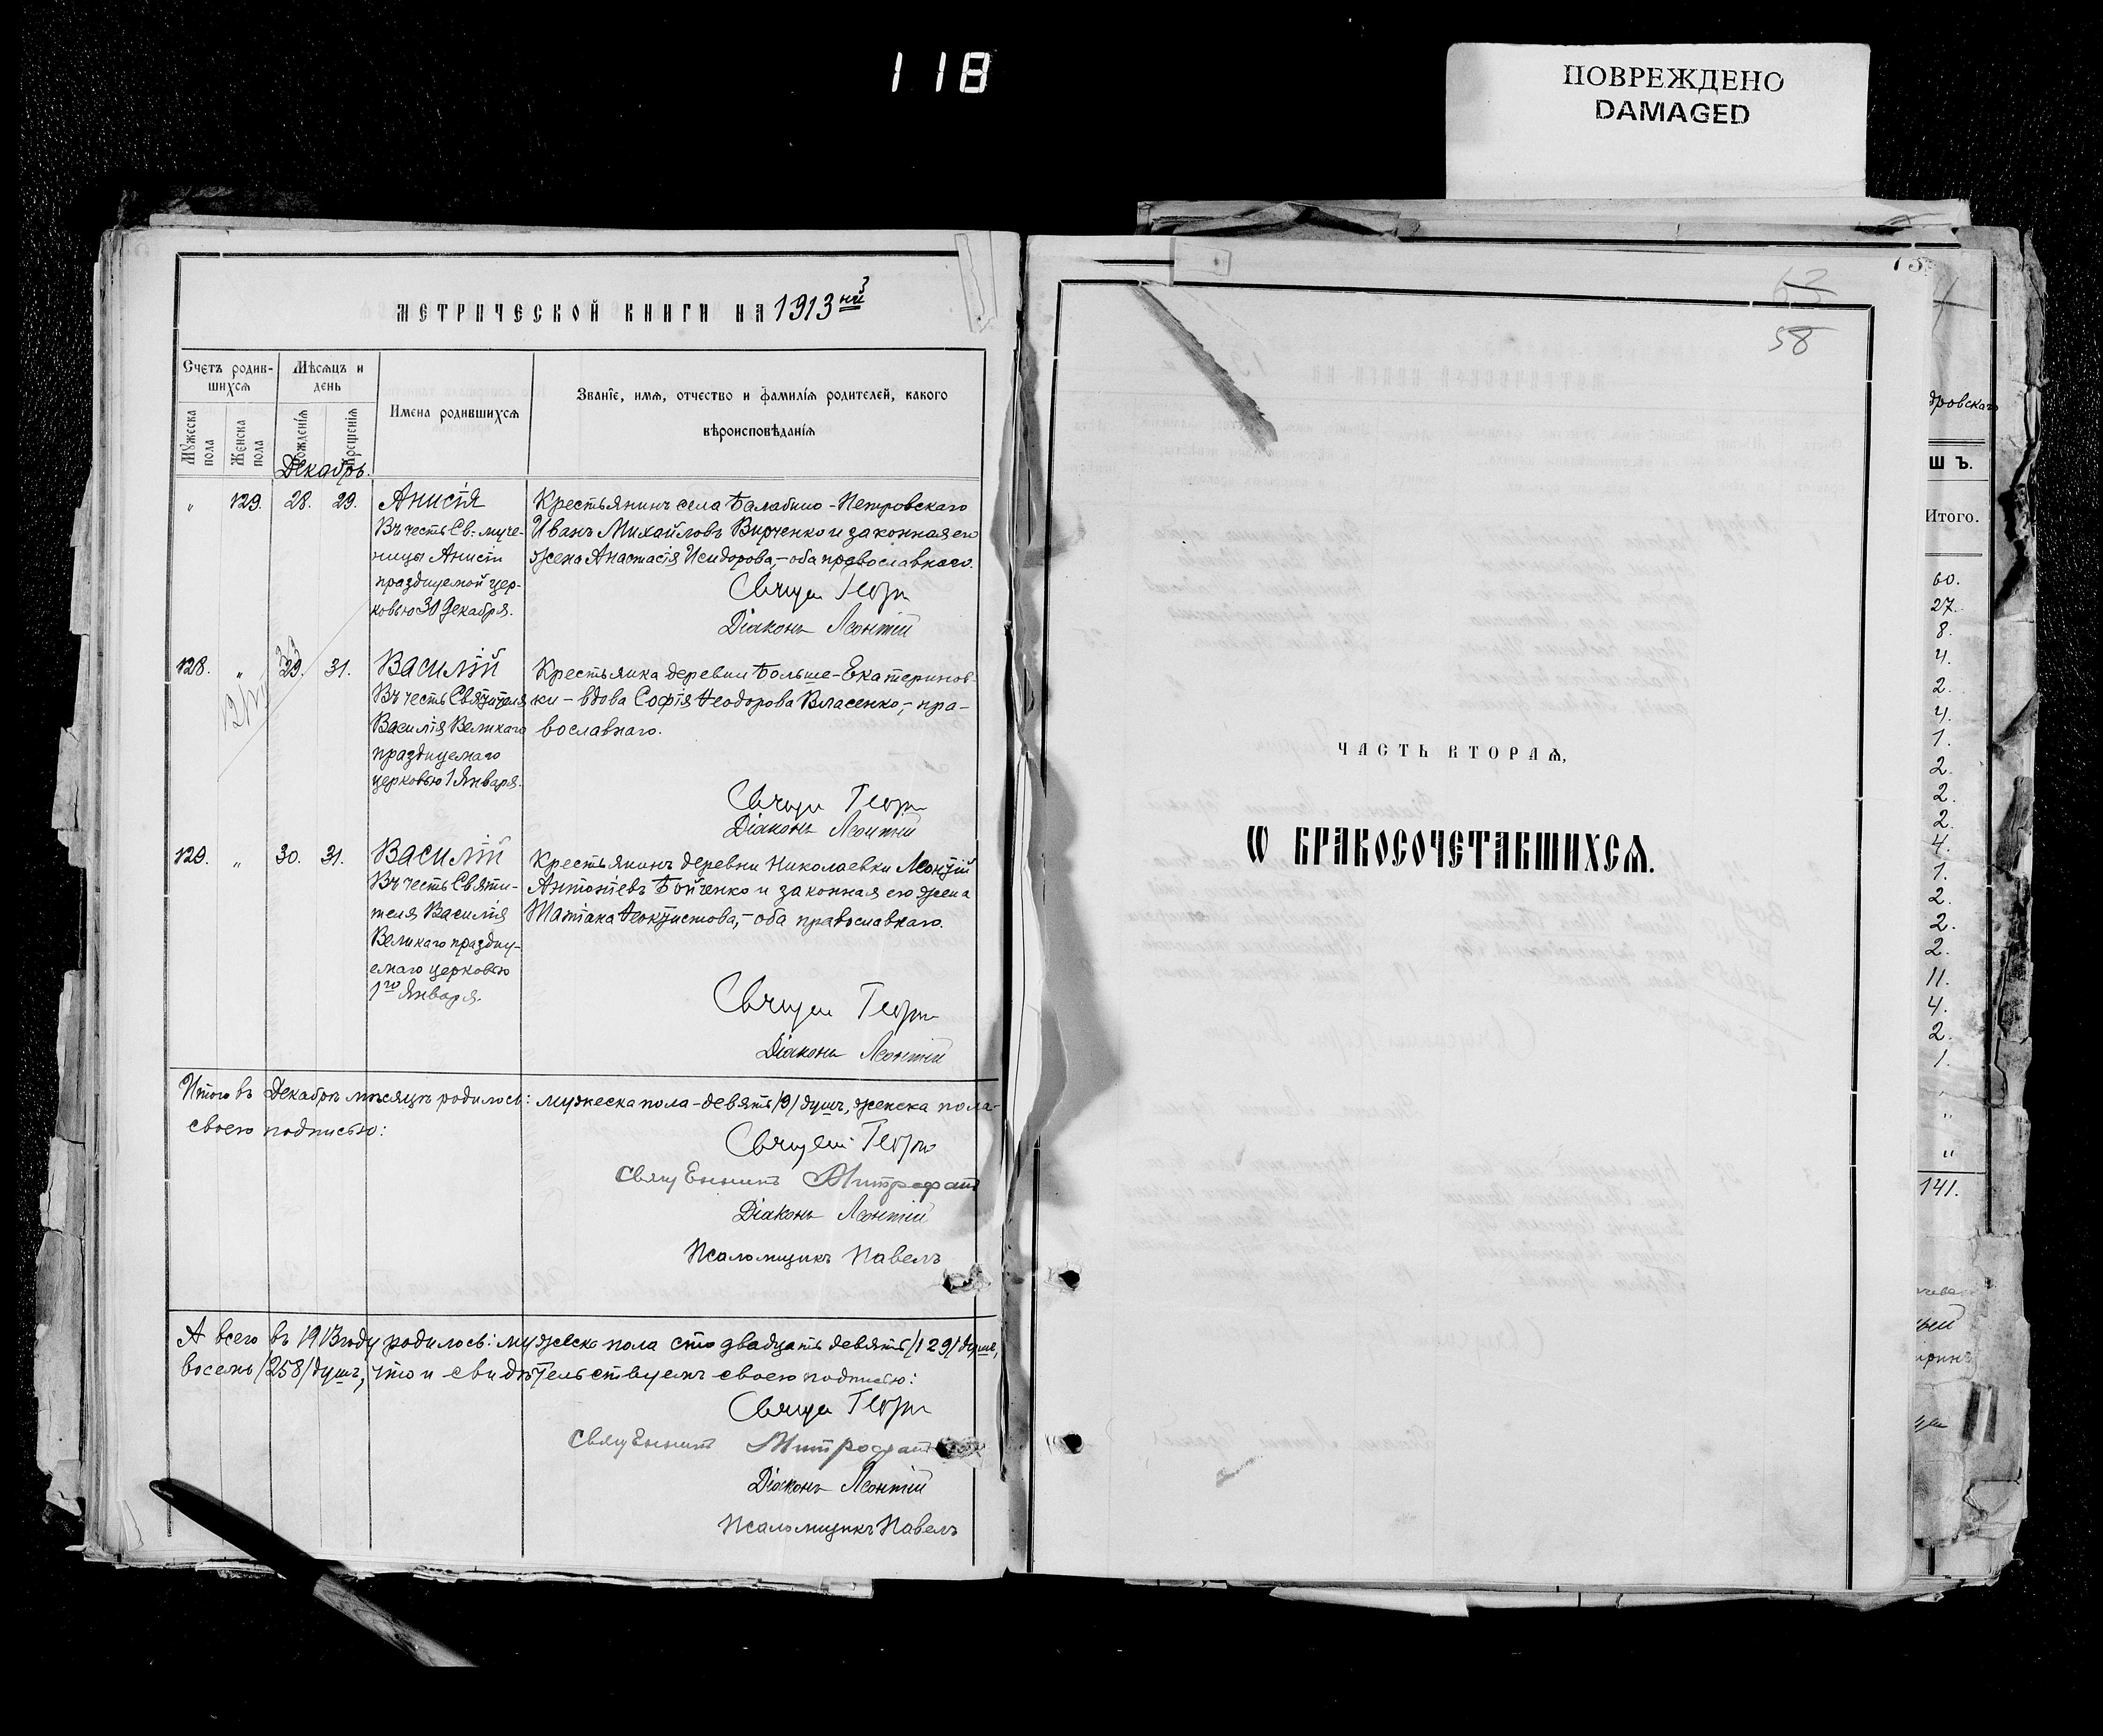 118
ПОВРЕЖДЕНО
DAMAGED
МЕТРИЧЕСКОЙ КНИГИ НА 1913ый
Счетъ родив-
шихсѧ
Мужеска пола
Женска пола
Мѣсѧцъ и
день
Рожденїѧ
Крещенїѧ
Имена родившихсѧ
Званїе, имѧ, отчество и фамилїѧ родителей, какого
вѣроисповѣданїѧ
Декабрь.
" 129. 28. 29. Анисія
Въ честь Св. муче-
ницы Анисіи
празднуемой цер-
ковью 30 Декабря.
Крестьянинъ села Балабино-Петровскаго
Иванъ Михайловъ Вирченко и законная его
жена Анастасія Исидорова, - оба православнаго.
Діаконъ Леонтій
128. " 29. 31. Василій
Въ честь Святителя
Василія Великаго
празднуемаго
церковью 1 Января.
Крестьянка деревни Больше-Екатеринов-
ки - вдова Софія Ѳеодорова Власенко, - пра-
вославнаго.
Діаконъ Леонтій
129. " 30. 31. Василій
Въ честь Святи-
теля Василія
Великаго праздну-
емаго церковью
1го Января.
Крестьянинъ деревни Николаевки Леонтій
Антоніевъ Бойченко и законная его жена
Татіана Ѳеоктистова, - оба православнаго.
Діаконъ Леонтій
Итого въ Декабрѣ мѣсяцѣ родилось: мужеска пола - девять /9/ душъ, женска пола -
своею подписью:
Священникъ Митрофанъ
Діаконъ Леонтій
Псаломщикъ Павелъ
А всего въ 1913 году родилось: мужеска пола сто двадцать девять /129/ душъ,
восемь /258/ душъ, что и свидѣтельствуемъ своею подписью:
Священникъ Митрофанъ
Діаконъ Леонтій
Псаломщикъ Павелъ
58
ЧАСТЬ ВТОРАѦ,
Ѡ БРАКОСОЧЕТАВШИХСѦ.
дровскаго
Ш Ъ.
Итого.
60.
27.
8.
4.
2.
4.
1.
2.
2.
2.
4.
1.
2.
2.
2.
11.
4.
2.
1.
"
"
"
141.